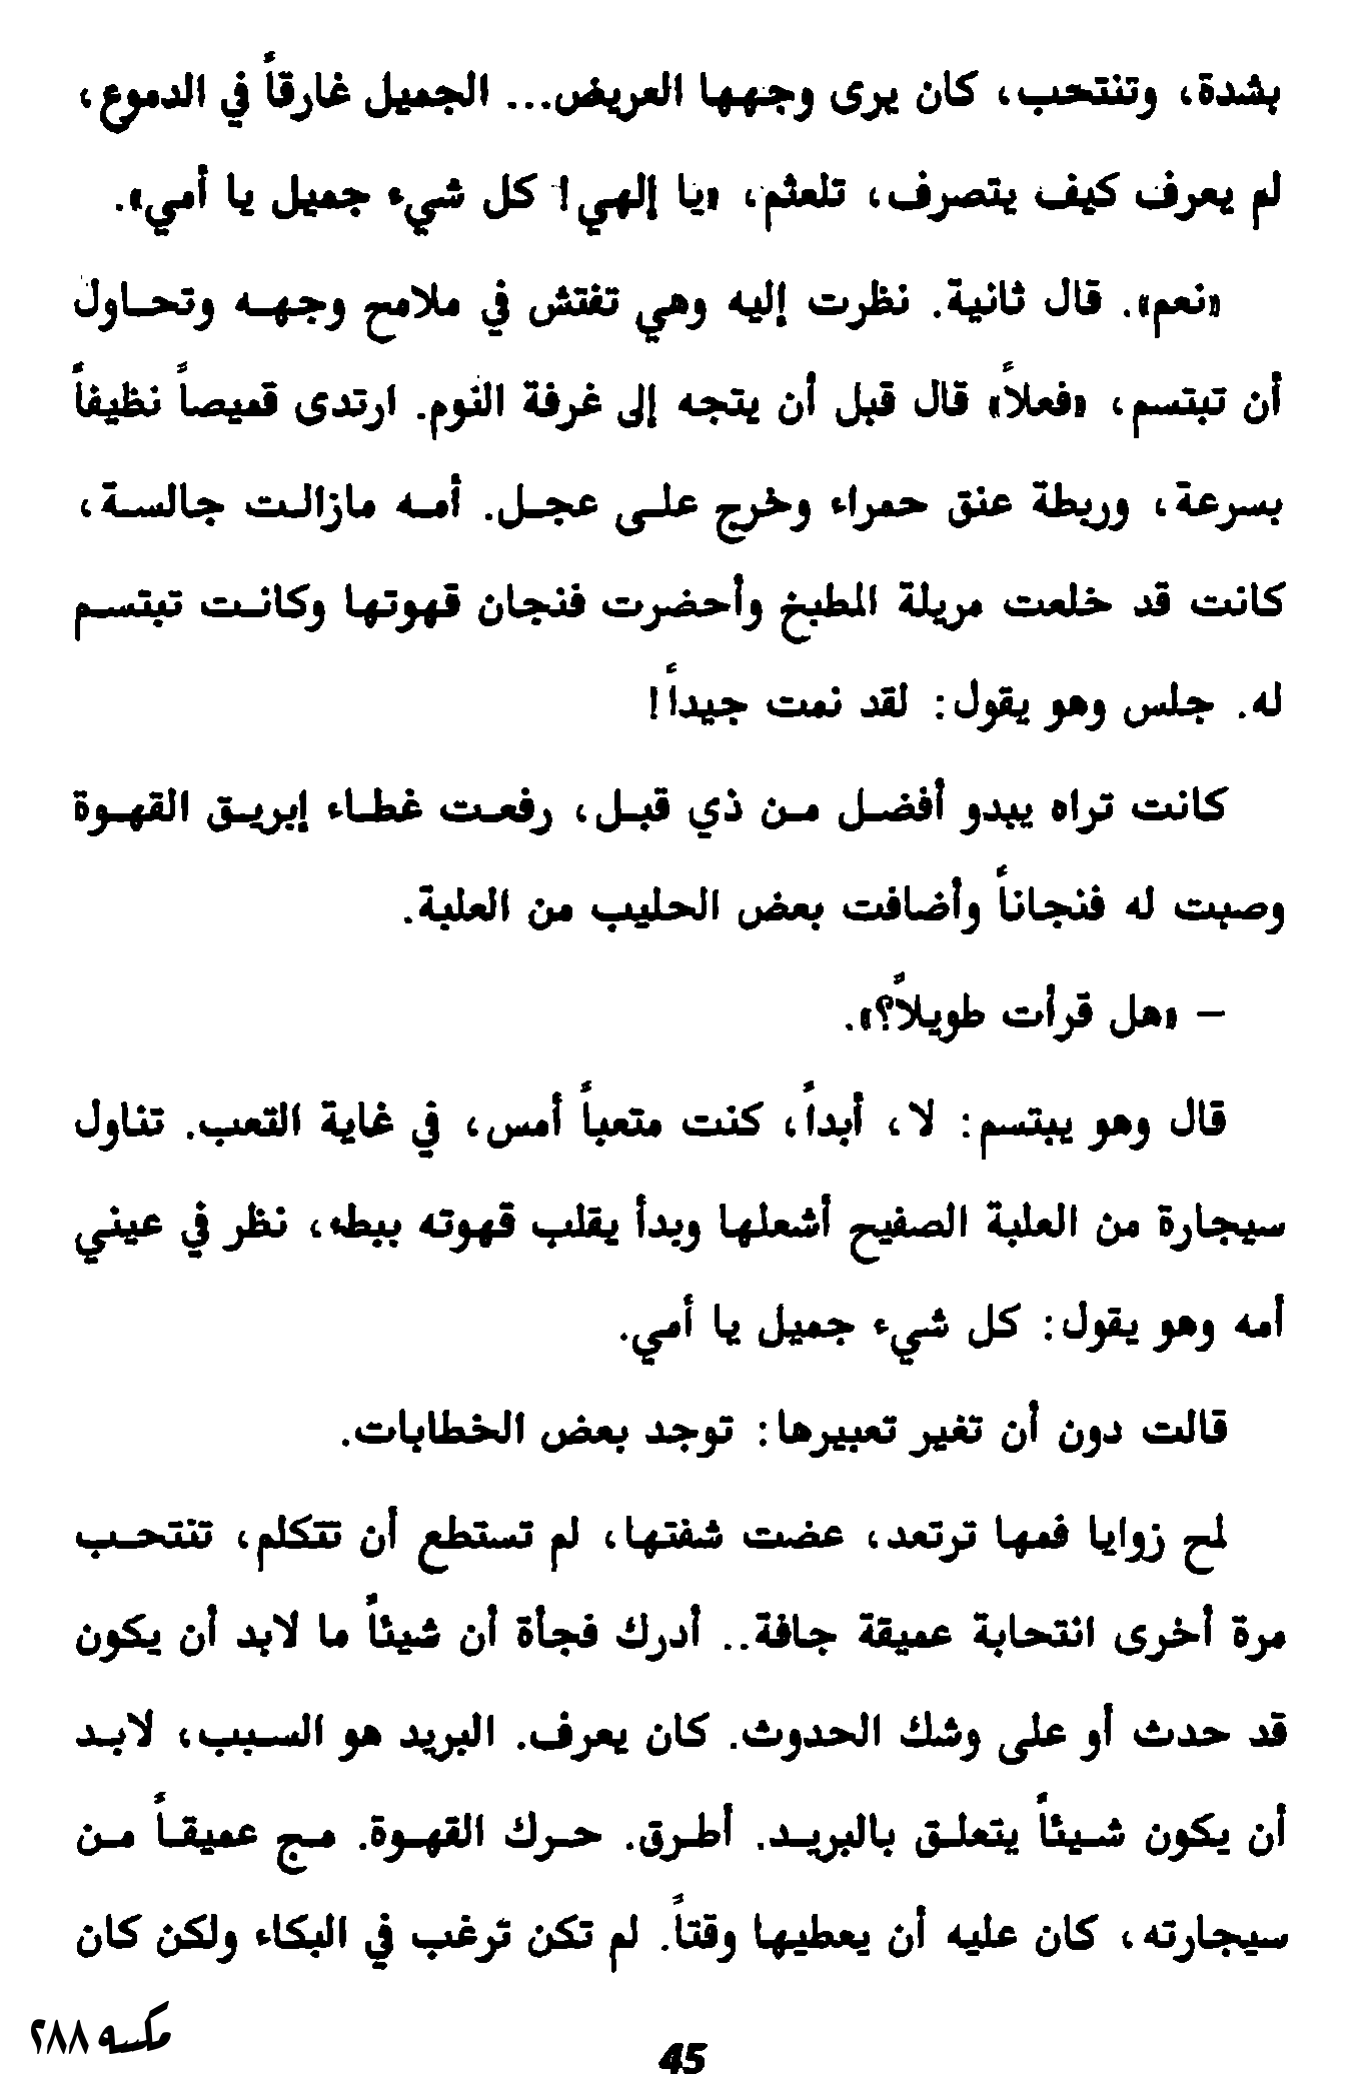 بشدة، وتنتحب، كان يرى وجهها العريض... الجميل غارقاً في الدموع،
لم يعرف كيف يتصرف، تلعثم، «يا إلهي! كل شيء جميل يا أمي».
«نعم». قال ثانية. نظرت إليه وهي تفتش في ملامح وجهـه وتحـاول
أن تبتسم، «فعلاً» قال قبل أن يتجه إلى غرفة النوم. ارتدى قميصاً نظيفاً
بسرعة، وربطة عنق حمراء وخرج علـى عجـل. أمـه مازالـت جالسـة،
كانت قد خلعت مريلة المطبخ وأحضرت فنجان قهوتها وكانـت تبتسـم
له. جلس وهو يقول: لقد نمت جيداً!
كانت تراه يبدو أفضـل مـن ذي قبـل، رفعـت غطـاء إبريـق القهـوة
وصبت له فنجاناً وأضافت بعض الحليب من العلبة.
– «هل قرأت طويلاً؟».
قال وهو يبتسم: لا، أبداً، كنت متعباً أمس، في غاية التعب. تناول
سيجارة من العلبة الصفيح أشعلها وبدأ يقلب قهوته ببطء، نظر في عيني
أمه وهو يقول: كل شيء جميل يا أمي.
قالت دون أن تغير تعبيرها: توجد بعض الخطابات.
لمح زوايا فمها ترتعد، عضت شفتها، لم تستطع أن تتكلم، تنتحـب
مرة أخرى انتحابة عميقة جافة.. أدرك فجأة أن شيئاً ما لابد أن يكون
قد حدث أو على وشك الحدوث. كان يعرف. البريد هو السـبب، لابـد
أن يكون شـيئاً يتعلـق بالبريـد. أطـرق. حـرك القهـوة. مـج عميقـاً مـن
سيجارته، كان عليه أن يعطيها وقتاً. لم تكن ترغب في البكاء ولكن كان
45